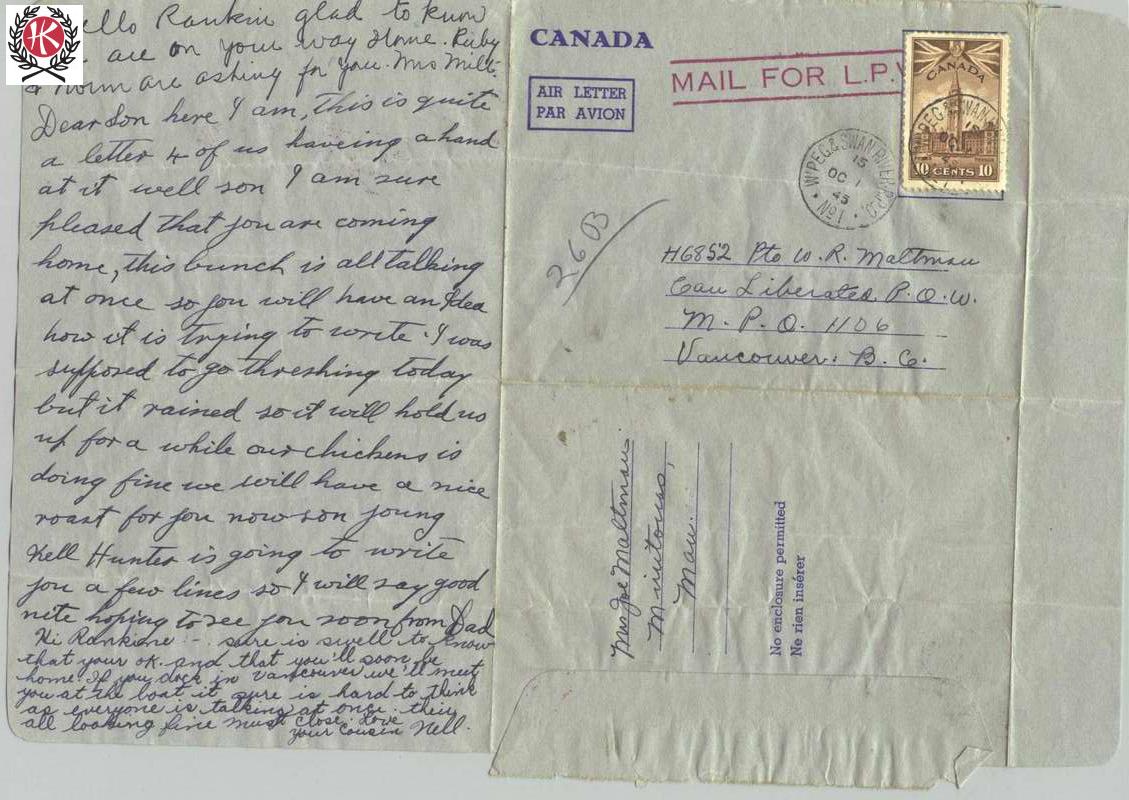 HK
Hello Rankin glad to know
are on your way Home. Ruby
& Norm are asking for you. Mrs Milt.
Dear Son here I am, this is quite
a letter 4 of us haveing a hand
at it well son I am sure
pleased that you are coming
home, this bunch is all talking
at once so you will have an Idea
how it is trying to write. I was
supposed to go threshing today
but it rained so it will hold us
up for a while our chickens is
doing fine we will have a nice
roast for you now son young
Nell Hunter is going to write
you a few lines so I will say good
nite hoping to see you soon from Dad
Hi Rankine - sure is swell to know
that your ok. and that you'll soon be
home. If you dock in Vancouver we'll meet
you at the boat it sure is hard to think
as everyone is talking at once. they
all looking fine must close. Love
your cousin Nell.
CANADA
AIR LETTER
PAR AVION
MAIL FOR L.P.
CANADA
10 CENTS 10
W'PEG. & SWAN RIVER R.P.O.
15
OC 1
45
No 1
26 B
H6852 Pte W. R. Maltman
Can Liberated P.O.W.
M. P. O. 1106
Vancouver: B. C.
Mrs Joe Maltman.
Minitonas,
Man.
No enclosure permitted
Ne rien insérer